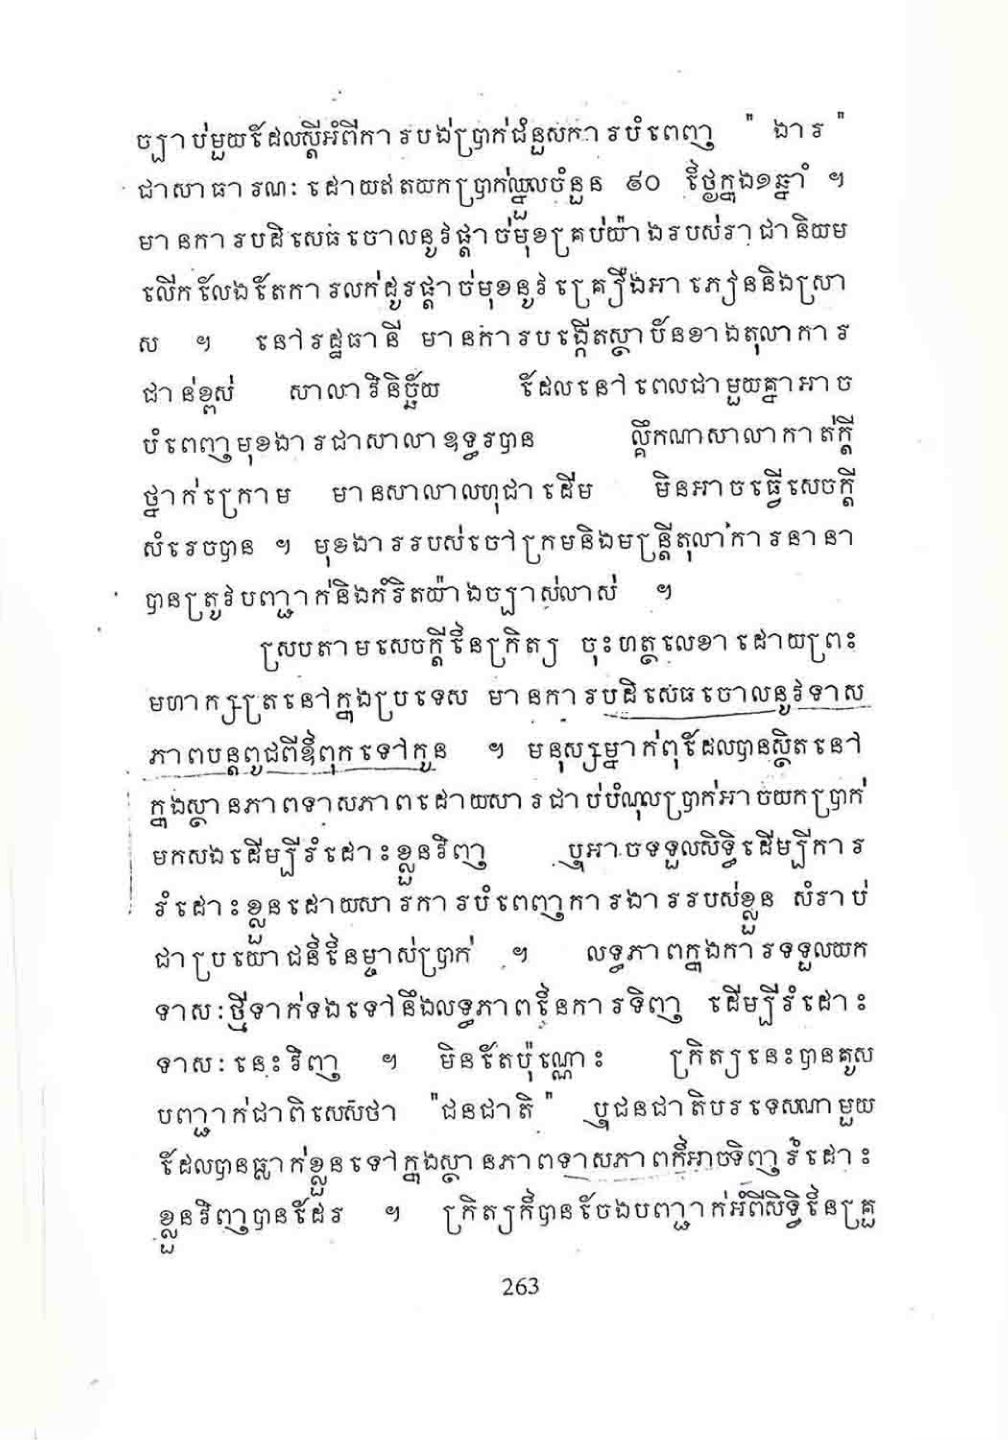 ច្បាប់មួយដែលស្តីអំពីការបង់ប្រាក់ជំនួសការបំពេញ " ងារ "
ជាសាធារណៈ ដោយឥតយកប្រាក់ឈ្នួលចំនួន ៩០ ថ្ងៃក្នុង១ឆ្នាំ ។
មានការបដិសេធចោលនូវផ្តាច់មុខគ្រប់យ៉ាងរបស់រាជានិយម
លើកលែងតែការលក់ដូរផ្តាច់មុខនូវគ្រឿងអាភៀននិងស្រា
ស ។ នៅរដ្ឋធានី មានការបង្កើតស្ថាប័នខាងតុលាការ
ជាន់ខ្ពស់ សាលាវិនិច្ឆ័យ ដែលនៅពេលជាមួយគ្នាអាច
បំពេញមុខងារជាសាលាឧទ្ធរបាន ល្គឹកណាសាលាកាត់ក្តី
ថ្នាក់ក្រោម មានសាលាលហុជាដើម មិនអាចធ្វើសេចក្តី
សំរេចបាន ។ មុខងាររបស់ចៅក្រមនិងមន្ត្រីតុលាការនានា
បានត្រូវបញ្ជាក់និងកំរិតយ៉ាងច្បាស់លាស់ ។
ស្របតាមសេចក្តីនៃក្រិត្យ ចុះហត្ថលេខាដោយព្រះ
មហាក្សត្រនៅក្នុងប្រទេស មានការបដិសេធចោលនូវទាស
ភាពបន្តពូជពីឪពុកទៅកូន ។ មនុស្សម្នាក់ៗដែលបានស្ថិតនៅ
ក្នុងស្ថានភាពទាសភាពដោយសារជាប់បំណុលប្រាក់អាចយកប្រាក់
មកសងដើម្បីរំដោះខ្លួនវិញ ឬអាចទទួលសិទ្ធិដើម្បីការ
រំដោះខ្លួនដោយសារការបំពេញការងាររបស់ខ្លួន សំរាប់
ជាប្រយោជន៍នៃម្ចាស់ប្រាក់ ។ លទ្ធភាពក្នុងការទទួលយក
ទាសៈថ្មីទាក់ទងទៅនឹងលទ្ធភាពនៃការទិញ ដើម្បីរំដោះ
ទាសៈនេះវិញ ។ មិនតែប៉ុណ្ណោះ ក្រិត្យនេះបានគូស
បញ្ជាក់ជាពិសេសថា "ជនជាតិ" ឬជនជាតិបរទេសណាមួយ
ដែលបានធ្លាក់ខ្លួនទៅក្នុងស្ថានភាពទាសភាពក៏អាចទិញរំដោះ
ខ្លួនវិញបានដែរ ។ ក្រិត្យក៏បានចែងបញ្ជាក់អំពីសិទ្ធិនៃគ្រួ
263